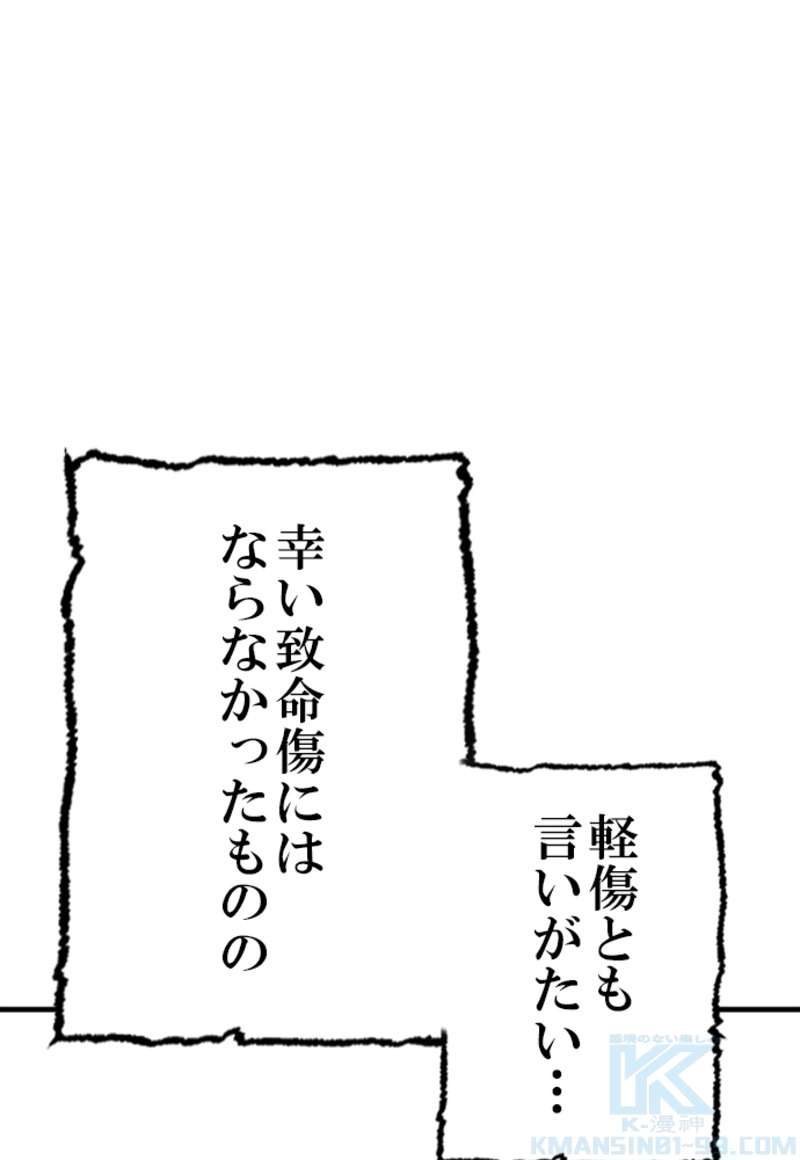 幸い致命傷には
ならなかったものの
軽傷とも
言いがたい…
K-漫神
KMANSIN01-93.COM